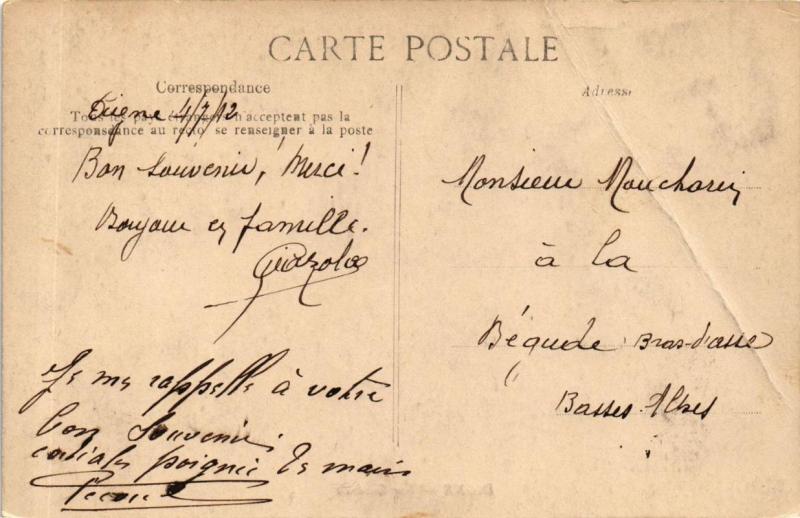 CARTE POSTALE
Correspondance
Tous les pays étrangers n'acceptent pas la
correspondance au recto, se renseigner à la poste
4/7/12
Bon souvenir, Merci!
Bonjour en famille.
Je me rappelle à votre
bon souvenir.
cordiales poignée de main
Adresse
Monsieur
à la
Bégude Bras-d'asse
Basses-Alpes